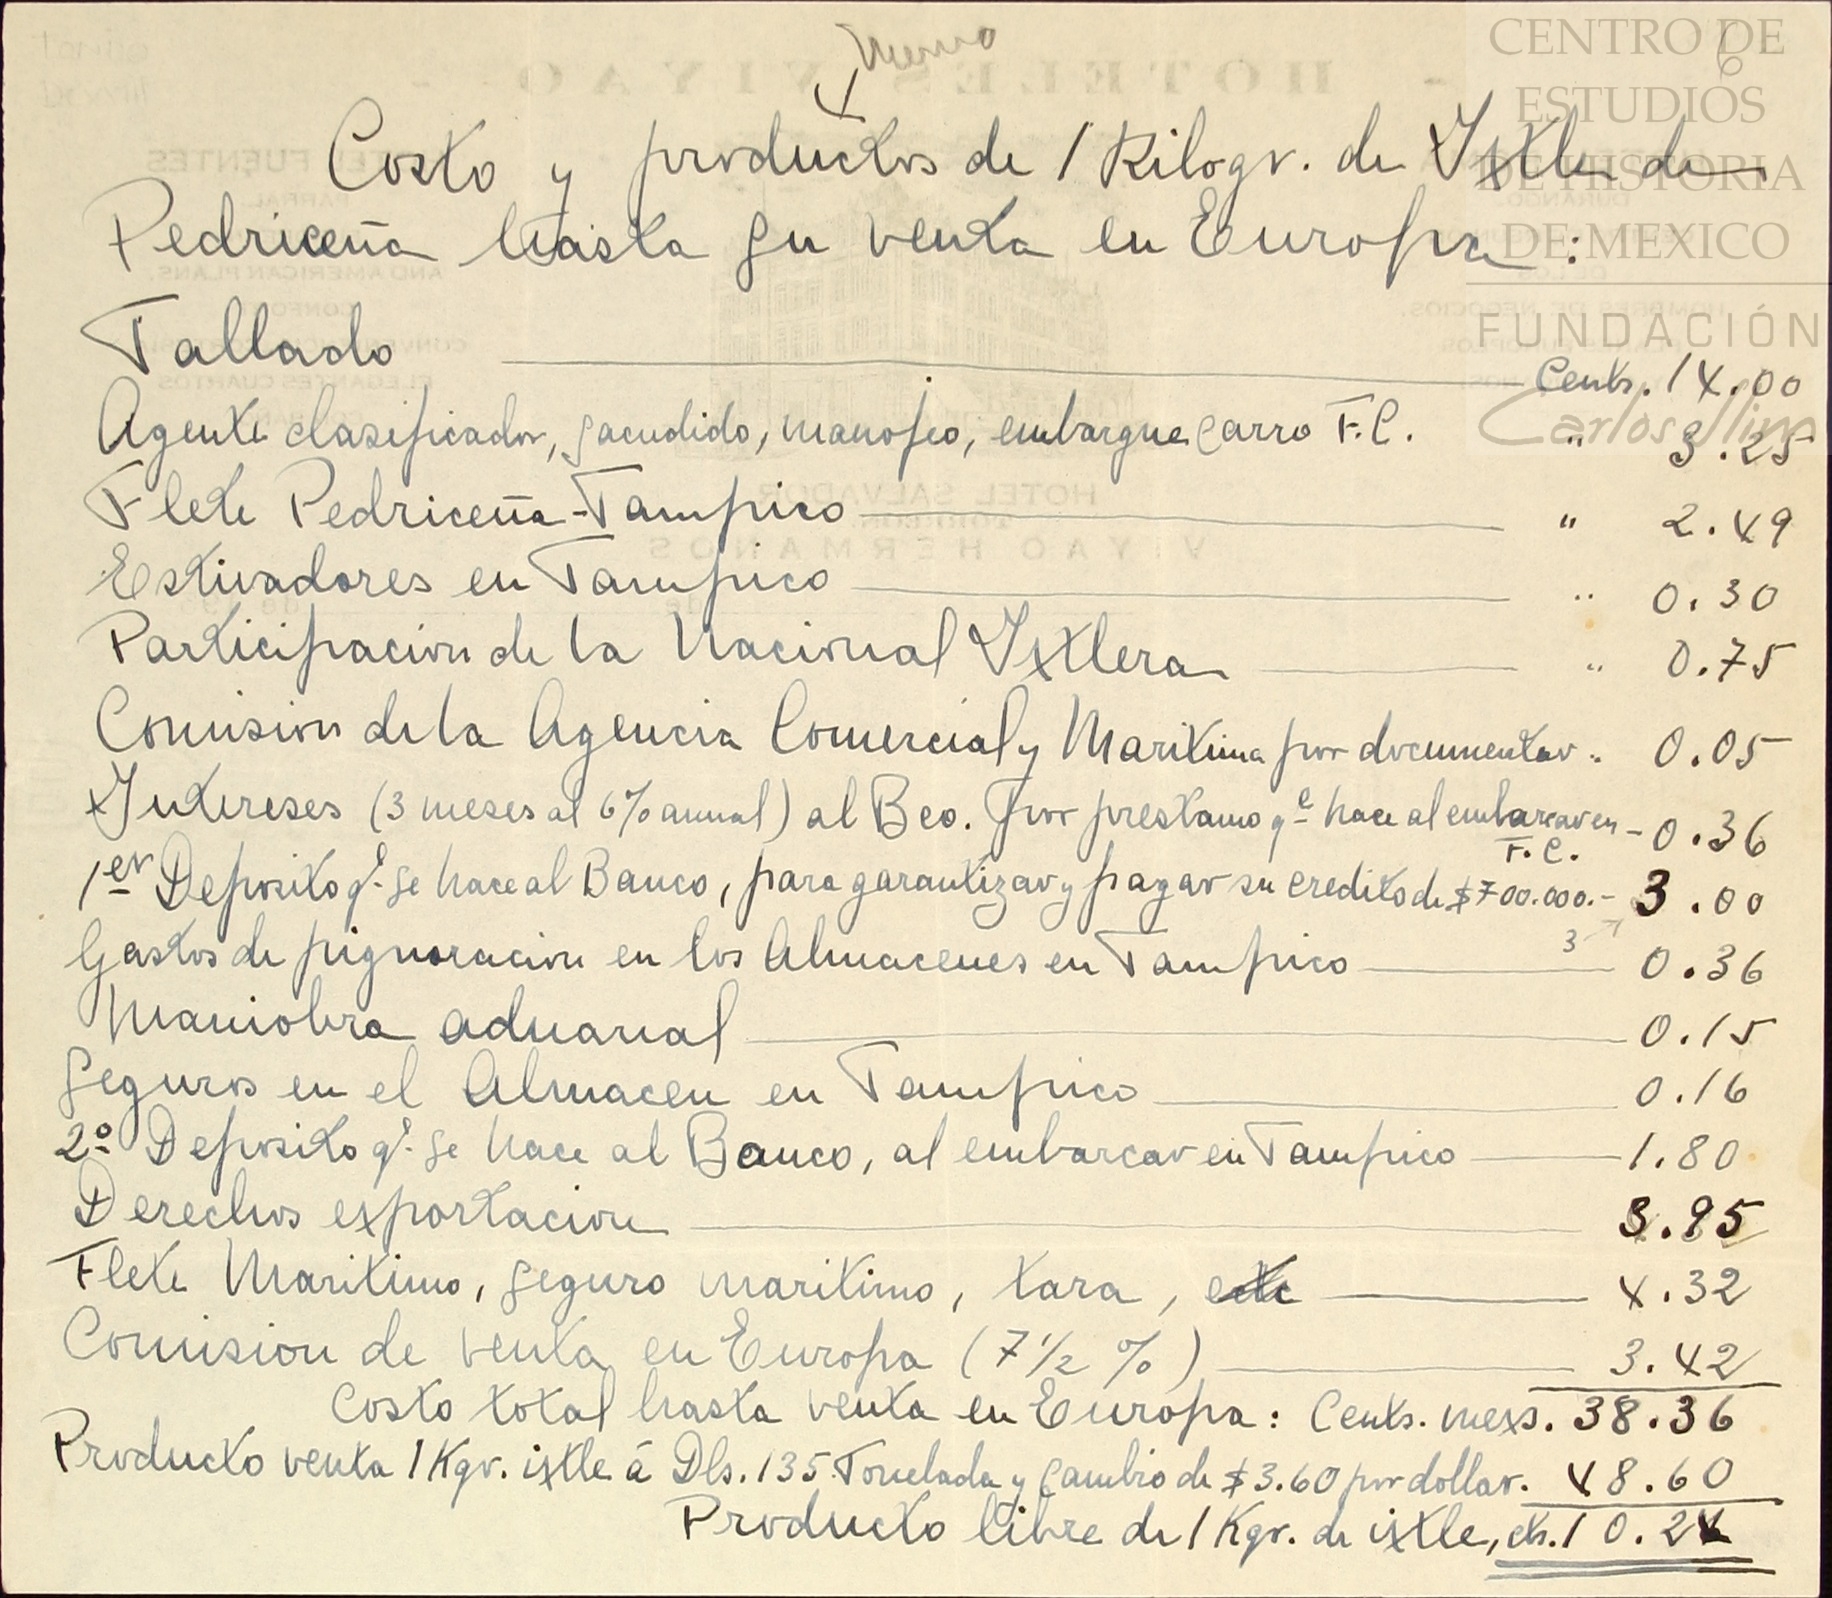 Memo
CENTRO DE
ESTUDIOS
DE HISTORIA
DE MEXICO
FUNDACIÓN
Carlos Slim
Costo y productos de 1 Kilogr. de Ixtle de
Pedriceña hasta su venta en Europa :
Tallado Cents. 14.00
Agente clasificador, sacudido, manojeo, embarque carro F.C. " 3.25
Flete Pedriceña-Tampico " 2.49
Estivadores en Tampico " 0.30
Participación de la Nacional Ixtlera " 0.75
Comision de la Agencia Comercial y Maritima por documentar " 0.05
Intereses (3 meses al 6% anual) al Bco. por prestamo qe hace al embarcar en F.C. - 0.36
1er Deposito qe se hace al Banco, para garantizar y pagar su credito de $700.000.- 3.00
3
Gastos de pignoracion en los Almacenes en Tampico 0.36
Maniobra aduanal 0.15
Seguros en el Almacen en Tampico 0.16
2º Deposito qe se hace al Banco, al embarcar en Tampico 1.80
Derechos exportacion 3.95
Flete Maritimo, seguro maritimo, tara, etc 4.32
Comision de venta en Europa (7 1/2 %) 3.42
Costo total hasta venta en Europa : Cents. mexs. 38.36
Producto venta 1 Kgr. ixtle á Dls. 135 Tonelada y cambio de $3.60 por dollar. 48.60
Producto libre de 1 Kgr. de ixtle, cts. 10.24